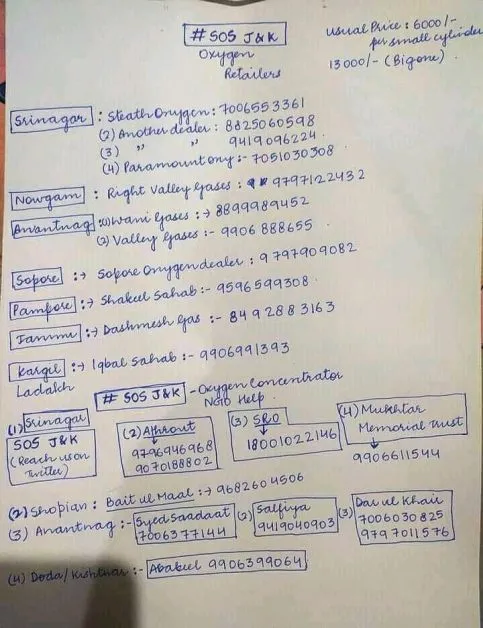 # SOS J&K
Oxygen
Retailers
Usual Price : 6000/-
per small cylinder
13000/- (Big one)
Srinagar : Steath Oxygen : 7006553361
(2) Another dealer : 8825060598
(3) " " 9419096224
(4) Paramount oxy :- 7051030308
Nowgam : Right Valley Gases : 9797122432
Anantnag :(1) Wani Gases : → 8899989452
(2) Valley Gases :- 9906888655
Sopore :→ Sopore Oxygen dealer : 9797909082
Pampore :→ Shakeel Sahab :- 9596599308
Jammu :→ Dashmesh Gas :- 8492883163
Kargil :→ Iqbal Sahab :- 9906991393
Ladakh
# SOS J&K - Oxygen Concentrator
NGO Help.
(1) Srinagar
SOS J&K
(Reach us on
Twitter)
(2) Athrout
9796946968
9070188802
(3) SRO
18001022146
(4) Mukhtar
Memorial Trust
9906611544
(2) Shopian : Bait ul Maal :→ 9682604506
(3) Anantnag :- Syed Saadaat (2) Salfiya (3) Dar ul Khair
7006377144 9419040903 7006030825
9797011576
(4) Doda/Kishtwar :- Ababeel 9906399064